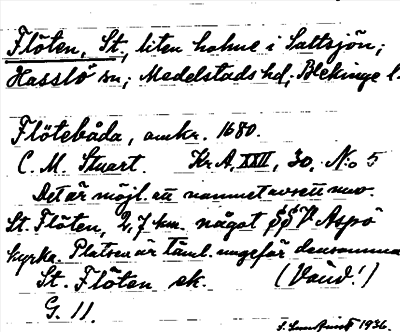 Flöten, St., liten holme i Saltsjön;
Hasslö sn; Medelstads hd; Blekinge l.
Flötebåda, omkr. 1680.
C. M. Stuart. Kr. A, XXII, 30, N:o 5
Det är möjl. att namnet avsett nuv.
St. Flöten, 2,7 km. något V Aspö
kyrka. Platsen är täml. ungefär densamma
St. Flöten ek. (Vänd!)
G. 11.
1936.